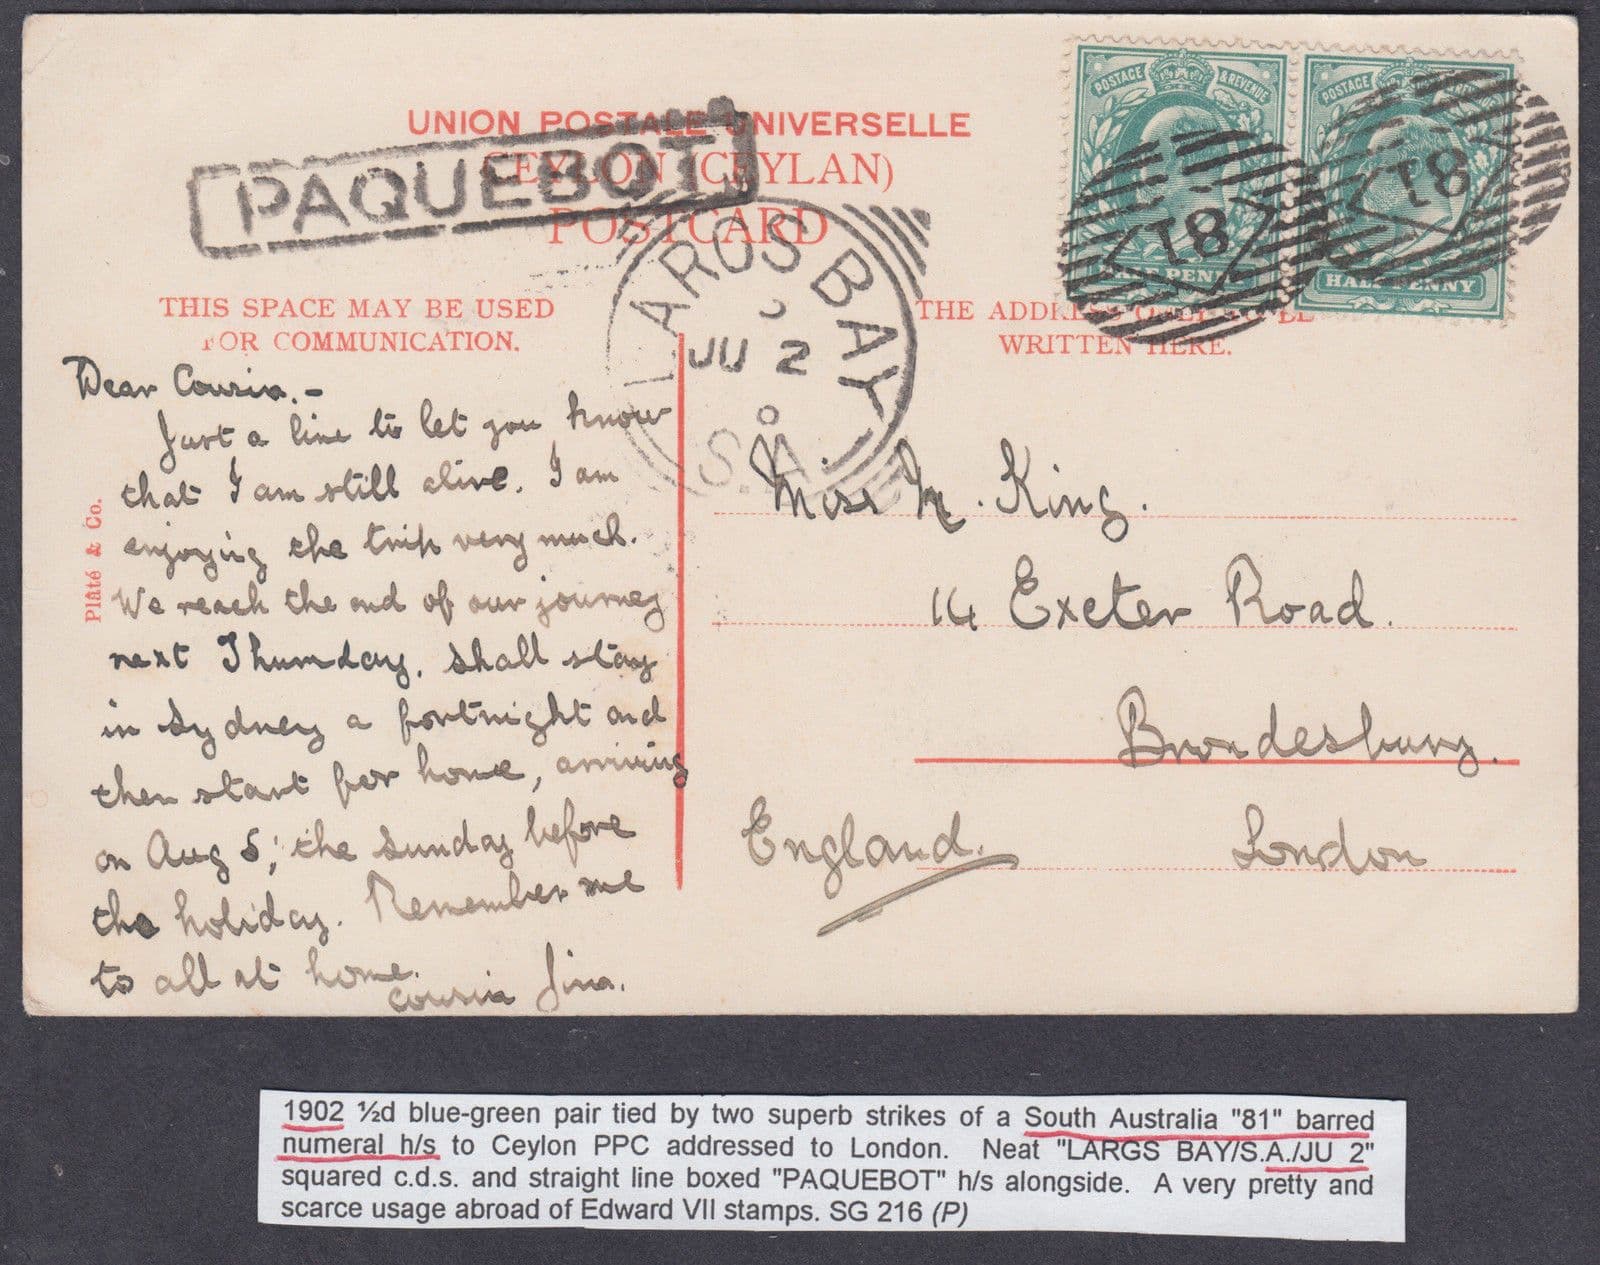 UNION POSTALE UNIVERSELLE
CEYLON (CEYLAN)
POSTCARD
PAQUEBOT
POSTAGE & REVENUE
POSTAGE & REVENUE
81
81
HALF PENNY
HALF PENNY
LARGS BAY
JU 2
S.A.
THIS SPACE MAY BE USED
FOR COMMUNICATION.
THE ADDRESS ONLY TO BE
WRITTEN HERE.
Plâté & Co.
Dear Cousin. -
Just a line to let you know
that I am still alive. I am
enjoying the trip very much.
We reach the end of our journey
next Thursday, shall stay
in Sydney a fortnight and
then start for home, arriving
on Aug 5; the Sunday before
the holiday. Remember me
to all at home.
Cousin
Miss M. King.
14 Exeter Road.
Brondesbury.
London
England.
1902 ½d blue-green pair tied by two superb strikes of a South Australia "81" barred
numeral h/s to Ceylon PPC addressed to London. Neat "LARGS BAY/S.A./JU 2"
squared c.d.s. and straight line boxed "PAQUEBOT" h/s alongside. A very pretty and
scarce usage abroad of Edward VII stamps. SG 216 (P)